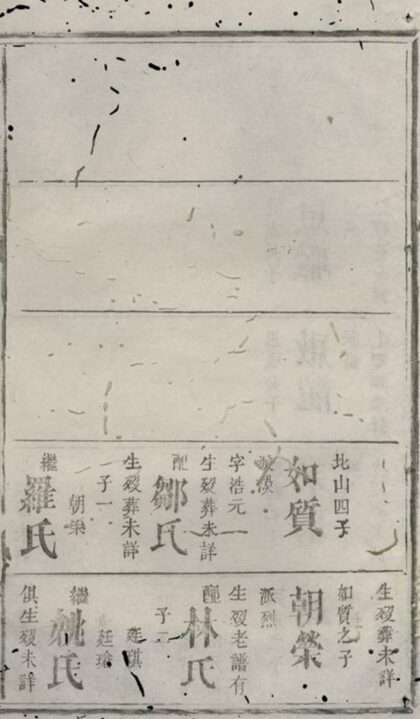 北山四子
如質
字浩元
生歿葬未詳
配鄒氏
生歿葬未詳
子一
朝榮
繼羅氏
生歿葬未詳
如質之子
朝榮
派烈
生歿老譜有
配林氏
子二
廷琪
廷瑜
繼姚氏
俱生歿未詳